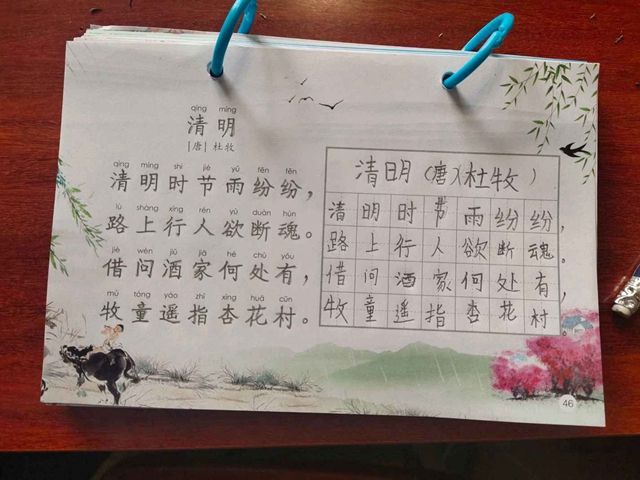 qīng míng
清明
[唐] 杜牧
qīng míng shí jié yǔ fēn fēn
清明时节雨纷纷，
lù shàng xíng rén yù duàn hún
路上行人欲断魂。
jiè wèn jiǔ jiā hé chù yǒu
借问酒家何处有，
mù tóng yáo zhǐ xìng huā cūn
牧童遥指杏花村。
清明（唐）（杜牧）
清明时节雨纷纷，
路上行人欲断魂。
借问酒家何处有，
牧童遥指杏花村。
46